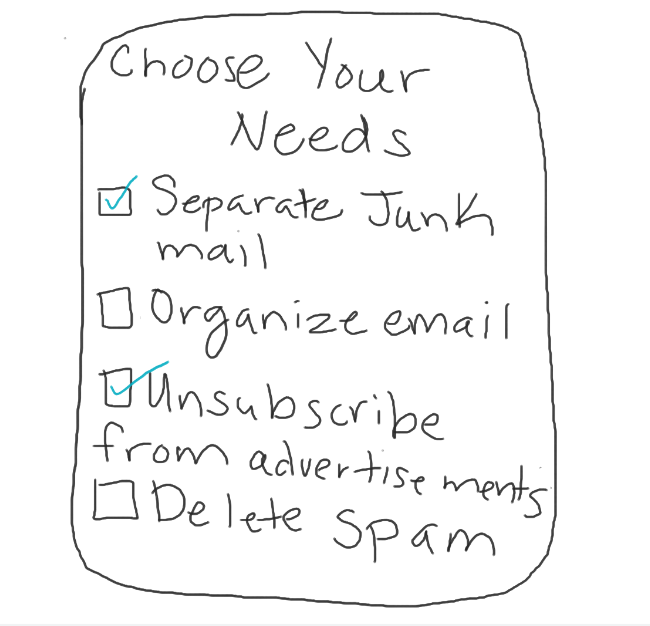 Choose Your
Needs
Separate Junk
mail
Organize email
Unsubscribe
from advertisements
Delete Spam